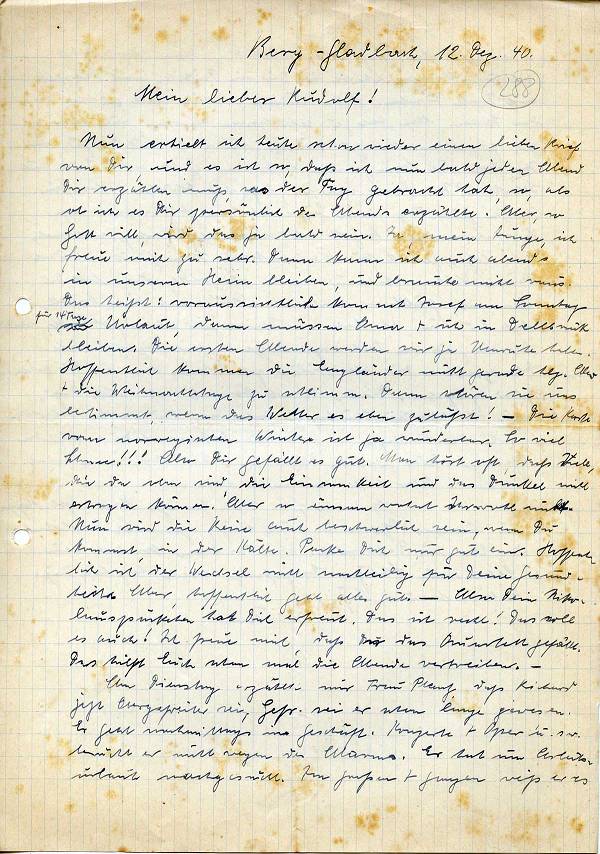 Berg-Gladbach, 12. Dez. 40.
288
Mein lieber Rudolf!
Nun erhielt ich heute schon wieder einen lieben Brief
von Dir, und es ist so, daß ich nun bald jeden Abend
Dir erzählen muß, was der Tag gebracht hat, so, als
ob ich es Dir persönlich des Abends erzählte. Aber, so
Gott will, wird das ja bald sein. Ja, mein Junge, ich
freue mich zu sehr. Dann kann ich auch abends
in unserem Heim bleiben, und brauche nicht raus.
Das heißt: voraussichtlich kommt Josef am Sonntag
für 14 Tage
Urlaub, dann müssen Oma + ich in Dellbrück
bleiben. Die ersten Abende werden wir ja Unruhe haben.
Hoffentlich kommen die Engländer nicht gerade Hlg. Abend
+ die Weihnachtstage zu schlimm. Dann stören sie uns
bestimmt, wenn das Wetter es eben zuläßt! – Die Karte
vom norwegischen Winter ist ja wunderbar. So viel
Schnee!!! Also Dir gefällt es gut. Man hört oft, daß Viele,
die da oben sind die Einsamkeit und das Dunkel nicht
ertragen können. Aber so einsam wohnt Ihr wohl nicht.
Nun wird die Reise auch beschwerlich sein, wenn Du
kommst, in der Kälte. Packe Dich nur gut ein. Hoffent-
lich ist der Wechsel nicht nachteilig für Deine Gesund-
heit. Aber, hoffentlich geht alles gut. – Also Dein Niko-
lauspäckchen hat Dich erfreut. Das ist recht! Das soll
es auch! Ich freue mich, daß das Quartett gefällt.
Das hilft Euch schon mal die Abende vertreiben. –
Am Dienstag erzählte mir Frau daß Richard
jetzt Obergefreiter sei, Gefr. sei er schon lange gewesen.
Er geht nachmittags ins Geschäft. Konzerte + Oper u.s.w.
besucht er nicht wegen des Alarms. Er hat um Arbeits-
urlaub nachgesucht. Im großen + ganzen weiß er es